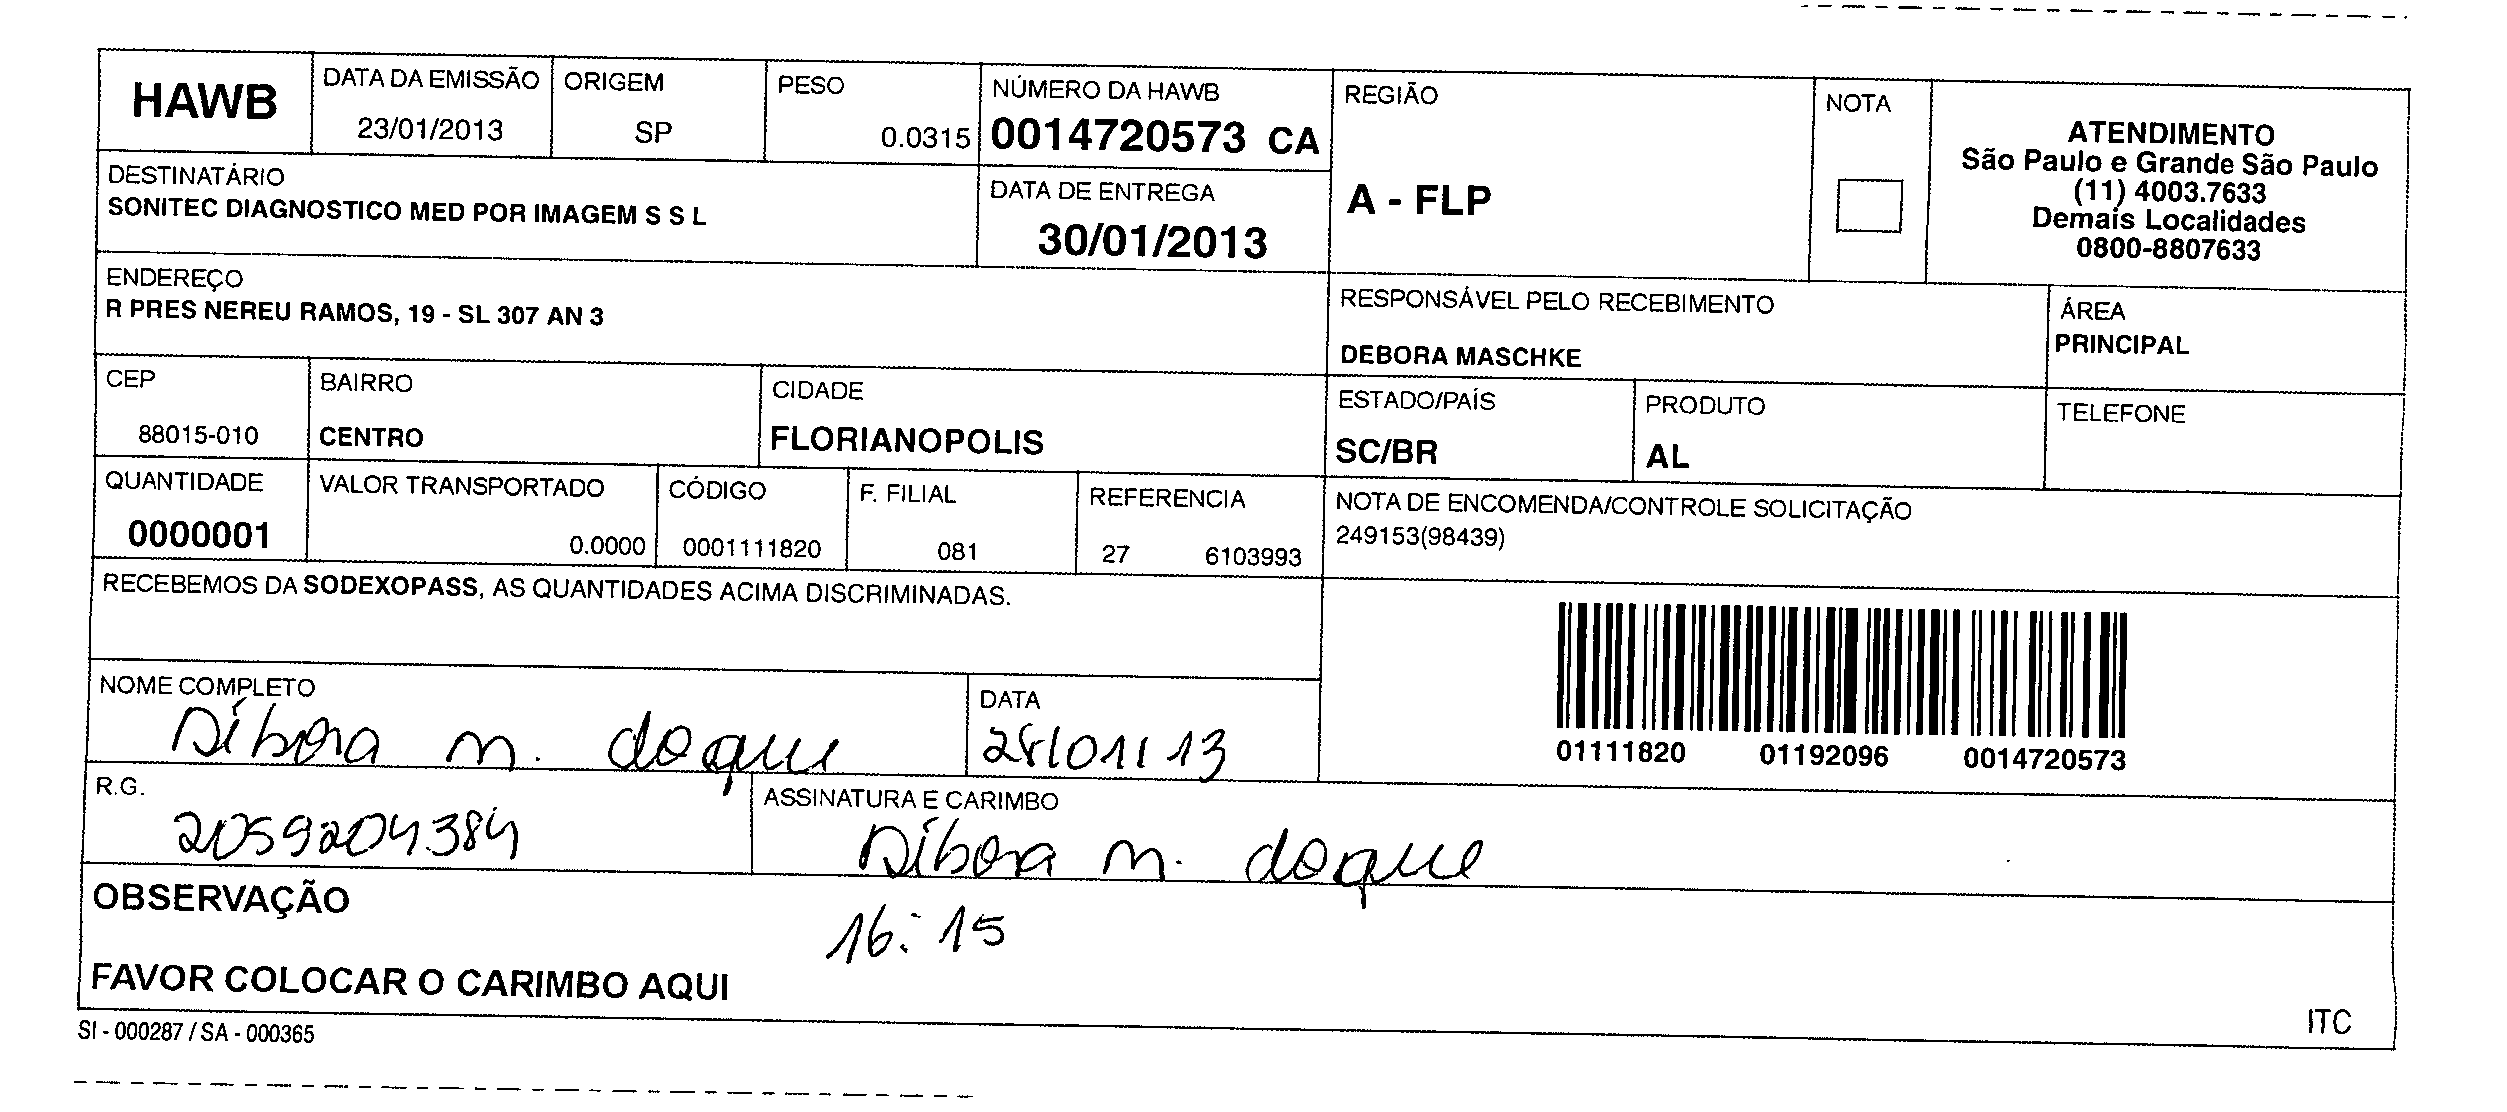 HAWB
DATA DA EMISSÃO
23/01/2013
ORIGEM
SP
PESO
0.0315
NÚMERO DA HAWB
0014720573 CA
REGIÃO
A - FLP
NOTA
ATENDIMENTO
São Paulo e Grande São Paulo
(11) 4003.7633
Demais Localidades
0800-8807633
DESTINATÁRIO
SONITEC DIAGNOSTICO MED POR IMAGEM S S L
DATA DE ENTREGA
30/01/2013
ENDEREÇO
R PRES NEREU RAMOS, 19 - SL 307 AN 3
RESPONSÁVEL PELO RECEBIMENTO
DEBORA MASCHKE
ÁREA
PRINCIPAL
CEP
88015-010
BAIRRO
CENTRO
CIDADE
FLORIANOPOLIS
ESTADO/PAÍS
SC/BR
PRODUTO
AL
TELEFONE
QUANTIDADE
0000001
VALOR TRANSPORTADO
0.0000
CÓDIGO
0001111820
F. FILIAL
081
REFERENCIA
27 6103993
NOTA DE ENCOMENDA/CONTROLE SOLICITAÇÃO
249153(98439)
RECEBEMOS DA SODEXOPASS, AS QUANTIDADES ACIMA DISCRIMINADAS.
01111820 01192096 0014720573
NOME COMPLETO
Débora m.
DATA
28/01/13
R.G.
2059204384
ASSINATURA E CARIMBO
Débora m.
OBSERVAÇÃO
16:15
FAVOR COLOCAR O CARIMBO AQUI
ITC
SI - 000287 / SA - 000365